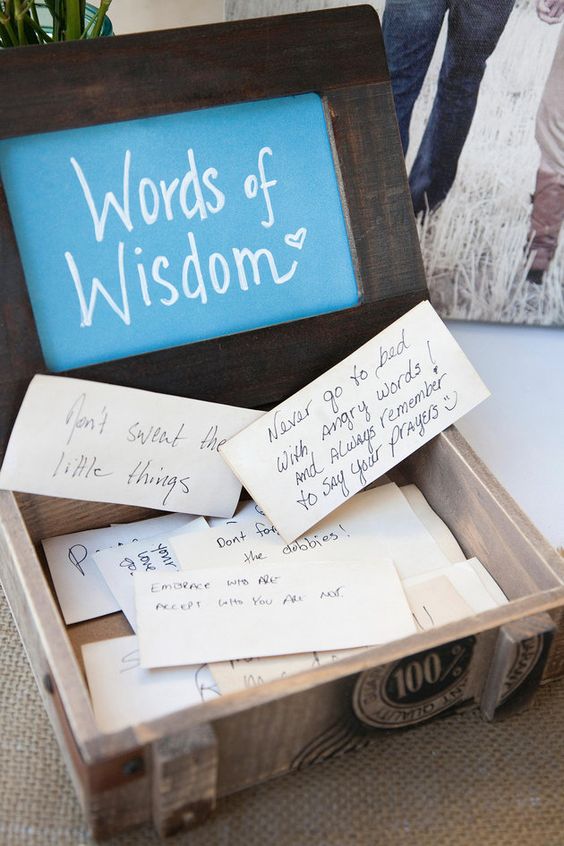 Words of
Wisdom
Never go to bed
with angry words!
and always remember
to say your prayers
Don't sweat the
little things
Dont for
the dobbies!
your
love
EMBRACE WHO ARE
ACCEPT WHO YOU ARE NOT.
100%
QUALITY